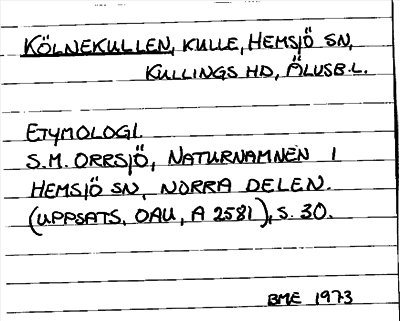 KÖLNEKULLEN, KULLE, HEMSJÖ SN,
KULLINGS HD, ÄLVSB.L.
ETYMOLOGI.
S.M. ORRSJÖ, NATURNAMNEN I
HEMSJÖ SN, NORRA DELEN.
(UPPSATS, OAU, A 2581), S. 30.
BME 1973